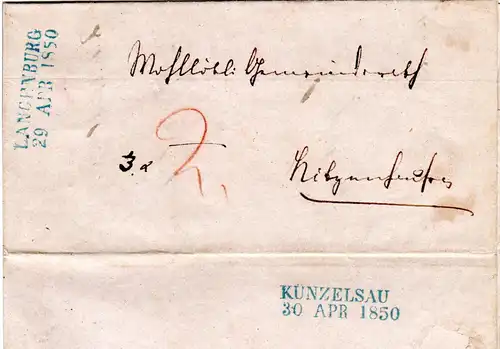 LANGENBURG
29 APR 1850
Wohllöbl. Gemeinderath
3.
2
Nitzenhausen
KÜNZELSAU
30 APR 1850